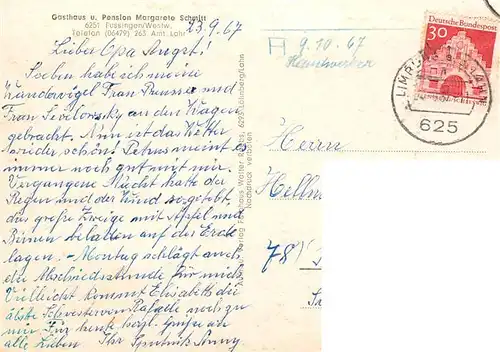 Gasthaus u. Pension Margarete Schmitt
6251 Fussingen/Westw.
Telefon (06479) 263 Amt Lahr
23.9.67
Lieber Opa Angst!
Soeben habe ich meine
Wandervögel Frau Brunner und
Frau an den Wagen
gebracht. Nun ist das Wetter
wieder schön! Petrus meint es
immer noch gut mit mir.
Vergangene Nacht hatte der
Regen und der Wind so getobt,
das große Zweige mit Äpfel und
Birnen beladen auf der Erde
lagen. - Montag schlägt auch
die Abschiedsstunde für mich
Vielleicht kommt Elisabeth die
älteste Schwester vom noch zu
mir Für heute herzl. Grüße an
alle Lieben Ihr Sonny
Verlag Walter 6295 Löhnberg/Lahn
Nachdruck verboten
9.10.67
Deutsche Bundespost
30
LIMBURG
625
Herrn
Hellm
78)